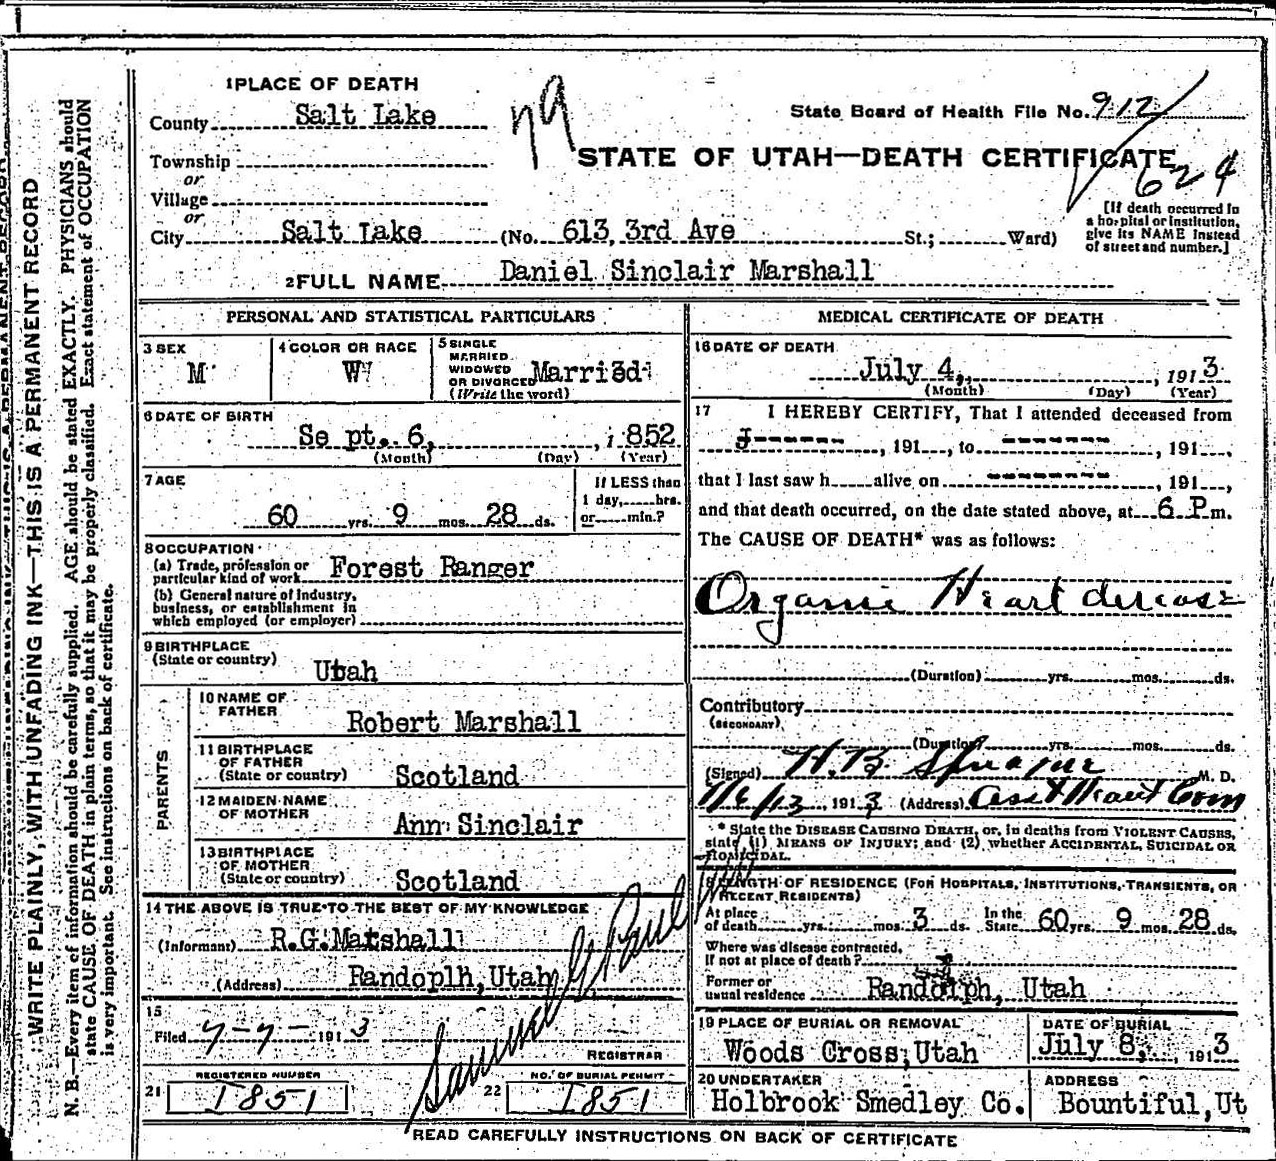 WRITE PLAINLY, WITH UNFADING INK—THIS IS A PERMANENT RECORD
N. B.—Every item of information should be carefully supplied. AGE should be stated EXACTLY. PHYSICIANS should
state CAUSE OF DEATH in plain terms, so that it may be properly classified. Exact statement of OCCUPATION
is very important. See instructions on back of certificate.
1 PLACE OF DEATH
County Salt Lake
Township
or
Village
or
City Salt Lake (No. 613, 3rd Ave St.; Ward)
State Board of Health File No. 912
STATE OF UTAH—DEATH CERTIFICATE
624
[If death occurred in
a hospital or institution,
give its NAME instead
of street and number.]
2 FULL NAME Daniel Sinclair Marshall
PERSONAL AND STATISTICAL PARTICULARS
3 SEX
M
4 COLOR OR RACE
W
5 SINGLE
MARRIED
WIDOWED
OR DIVORCED
(Write the word)
Married
6 DATE OF BIRTH
Sept. 6, , 1852
(Month) (Day) (Year)
7 AGE
60 yrs. 9 mos. 28 ds.
If LESS than
1 day, hrs.
or min.?
8 OCCUPATION
(a) Trade, profession or
particular kind of work Forest Ranger
(b) General nature of industry,
business, or establishment in
which employed (or employer)
9 BIRTHPLACE
(State or country)
Utah
PARENTS
10 NAME OF
FATHER
Robert Marshall
11 BIRTHPLACE
OF FATHER
(State or country) Scotland
12 MAIDEN NAME
OF MOTHER
Ann Sinclair
13 BIRTHPLACE
OF MOTHER
(State or country) Scotland
14 THE ABOVE IS TRUE TO THE BEST OF MY KNOWLEDGE
(Informant) R.G. Marshall
(Address) Randoplh, Utah
15
Filed 7-7- 1913
Samuel G Paul
REGISTRAR
REGISTERED NUMBER
21 I851
NO. OF BURIAL PERMIT
22 I851
MEDICAL CERTIFICATE OF DEATH
16 DATE OF DEATH
July 4, , 1913
(Month) (Day) (Year)
17 I HEREBY CERTIFY, That I attended deceased from
, 191 , to , 191 ,
that I last saw h alive on , 191 ,
and that death occurred, on the date stated above, at 6 P m.
The CAUSE OF DEATH* was as follows:
Organic Heart disease
(Duration) yrs. mos. ds.
Contributory
(SECONDARY)
(Duration) yrs. mos. ds.
(Signed) H. B. Sprague M. D.
1913 (Address)
* State the DISEASE CAUSING DEATH, or, in deaths from VIOLENT CAUSES,
state (1) MEANS OF INJURY; and (2) whether ACCIDENTAL, SUICIDAL OR
HOMICIDAL.
18 LENGTH OF RESIDENCE (FOR HOSPITALS, INSTITUTIONS, TRANSIENTS, OR
RECENT RESIDENTS)
At place
of death yrs. mos. 3 ds. In the
State 60 yrs. 9 mos. 28 ds.
Where was disease contracted,
If not at place of death?
Former or
usual residence Randolph, Utah
19 PLACE OF BURIAL OR REMOVAL
Woods Cross, Utah
DATE OF BURIAL
July 8, , 1913
20 UNDERTAKER
Holbrook Smedley Co.
ADDRESS
Bountiful, Ut
READ CAREFULLY INSTRUCTIONS ON BACK OF CERTIFICATE